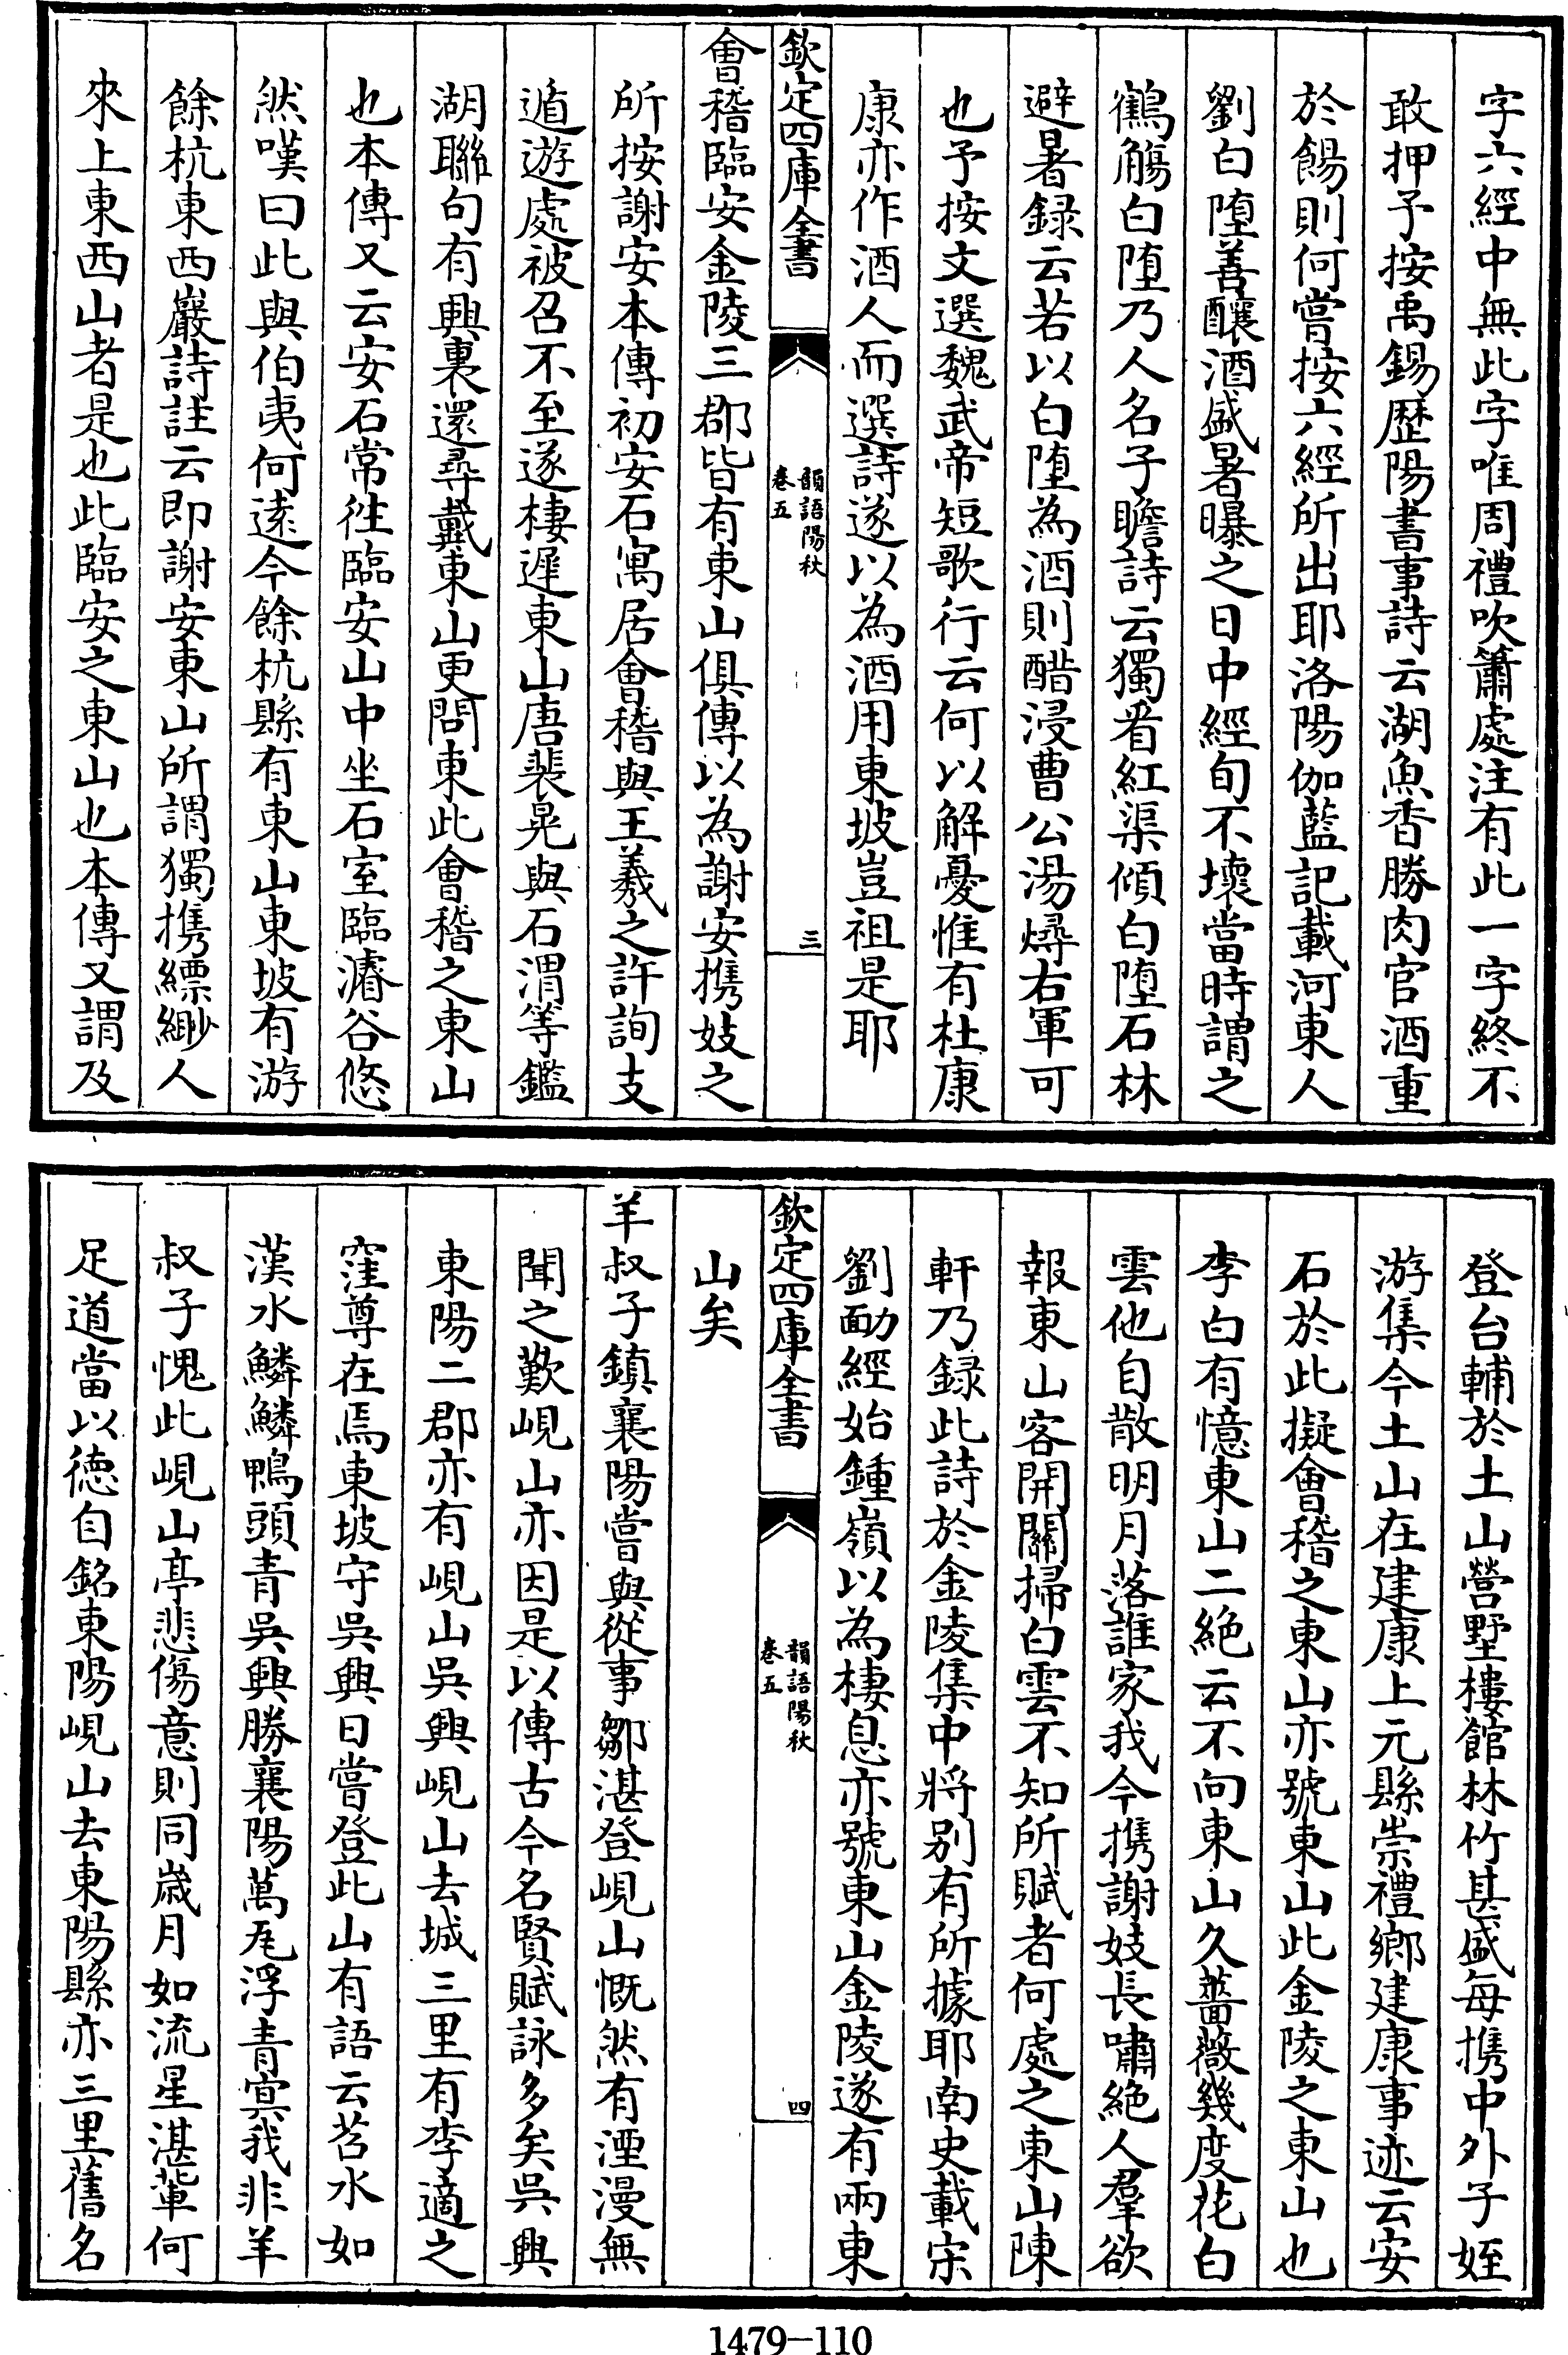 字六經中無此字唯周禮吹簫處注有此一字終不
敢押予按禹錫歴陽書事詩云湖魚香勝肉官酒重
於餳則何嘗按六經所出耶洛陽伽藍記載河東人
劉白堕善釀酒盛暑曝之日中經旬不壞當時謂之
鶴觴白堕乃人名子瞻詩云獨看紅渠傾白堕石林
避暑録云若以白堕為酒則醋浸曹公湯燖右軍可
也予按文選魏武帝短歌行云何以解憂惟有杜康
康亦作酒人而選詩遂以為酒用東坡豈祖是耶
欽定四庫全書
韻語陽秋
卷五
三
會稽臨安金陵三郡皆有東山俱傳以為謝安携妓之
所按謝安本傳初安石寓居會稽與王羲之許詢支
遁遊處被召不至遂棲遲東山唐裴晃與石渭等鑑
湖聯句有興裏還尋戴東山更問東此會稽之東山
也本傳又云安石常徃臨安山中坐石室臨濬谷悠
然嘆曰此與伯夷何逺今餘杭縣有東山東坡有游
餘杭東西巖詩註云即謝安東山所謂獨携縹緲人
來上東西山者是也此臨安之東山也本傳又謂及
登台輔於土山營墅樓館林竹甚盛每携中外子姪
游集今土山在建康上元縣崇禮鄉建康事迹云安
石於此擬會稽之東山亦號東山此金陵之東山也
李白有憶東山二絶云不向東山久薔薇幾度花白
雲他自散明月落誰家我今携謝妓長嘯絶人羣欲
報東山客開關掃白雲不知所賦者何處之東山陳
軒乃録此詩於金陵集中將别有所據耶南史載宋
劉勔經始鍾嶺以為棲息亦號東山金陵遂有兩東
欽定四庫全書
韻語陽秋
卷五
四
山矣
羊叔子鎮襄陽嘗與從事鄒湛登峴山慨然有湮漫無
聞之歎峴山亦因是以傳古今名賢賦詠多矣吳興
東陽二郡亦有峴山吳興峴山去城三里有李適之
窪尊在焉東坡守吳興日嘗登此山有語云苕水如
漢水鱗鱗鴨頭青吳興勝襄陽萬瓦浮青㝠我非羊
叔子愧此峴山亭悲傷意則同歳月如流星湛輩何
足道當以徳自銘東陽峴山去東陽縣亦三里舊名
1479-110